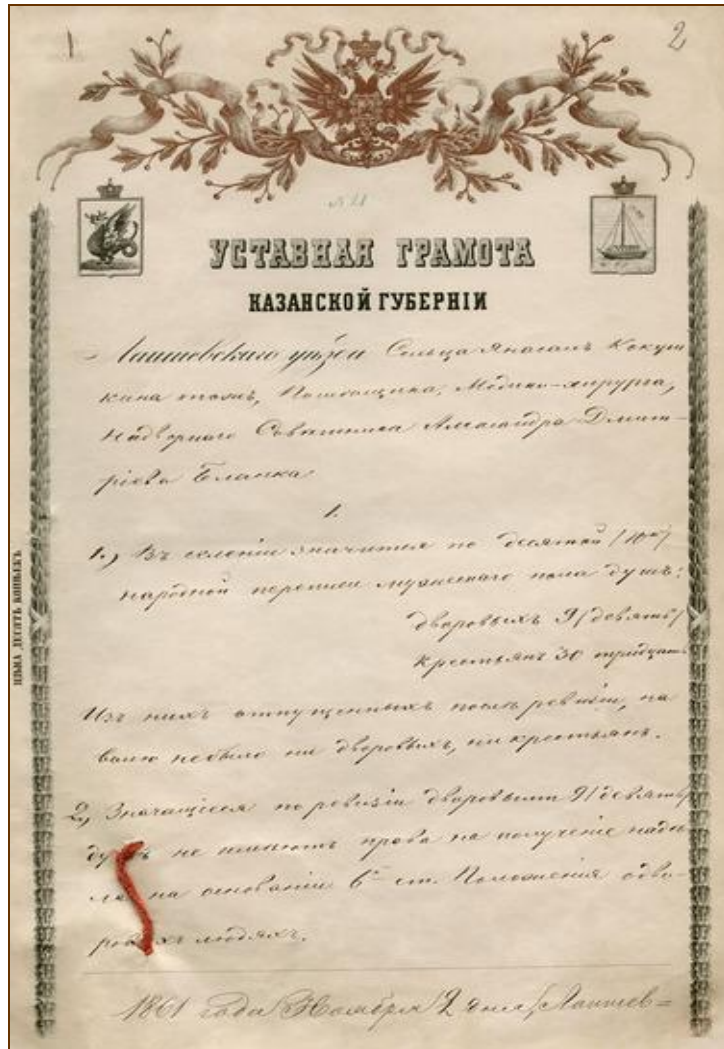 1 2
№ 21
УСТАВНАЯ ГРАМОТА
КАЗАНСКОЙ ГУБЕРНІИ
Лаишевскаго уѣзда Сельца Янасалъ Кокуш
кина тожъ, Помѣщика, Медико-хирурга,
Надворнаго Совѣтника Александра Дмит-
ріева Бланка
1.
1., Въ селеніи значится по десятой (10й)
народной переписи мужескаго пола душъ:
дворовыхъ 9 (девять)
крестьянъ 30 тридцать
Изъ нихъ отпущенныхъ послѣ ревизіи, на
волю небыло ни дворовыхъ, ни крестьянъ.
2., Значащіеся по ревизіи дворовыми 9 (девять)
душъ не имѣютъ права на полученіе надѣ
ла на основаніи 6й ст. Положенія о дво-
ровыхъ людяхъ.
1861 года Ноября 2 дня Лаишев=
ЦѢНА ДЕСЯТЬ КОПѢЕКЪ